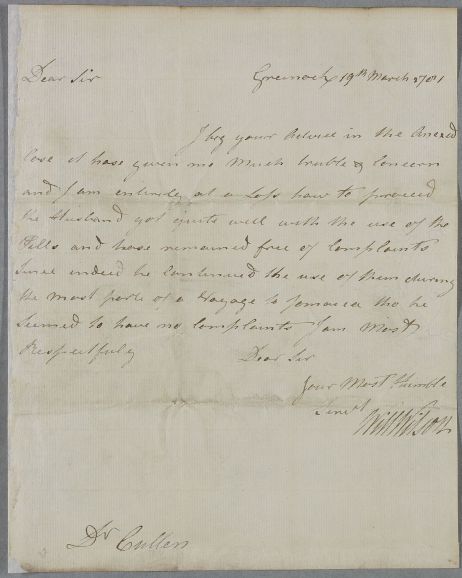 Dear Sir
Greenock 19th March 1781
I beg your Advice in the Anexed
Case it have given me Much truble & Concern
and I am entirely at a Loss how to proceed
the Husband got quite well with the use of the
Pills and have remained free of Complaints
Since indeed he Continued the use of them during
the most part of a Voyage to Jamaica tho he
Seemed to have no Complaints I am Most
Respectfuly
Dear Sir
Your Most Humble
Servt
Will Wilson
Dr Cullen